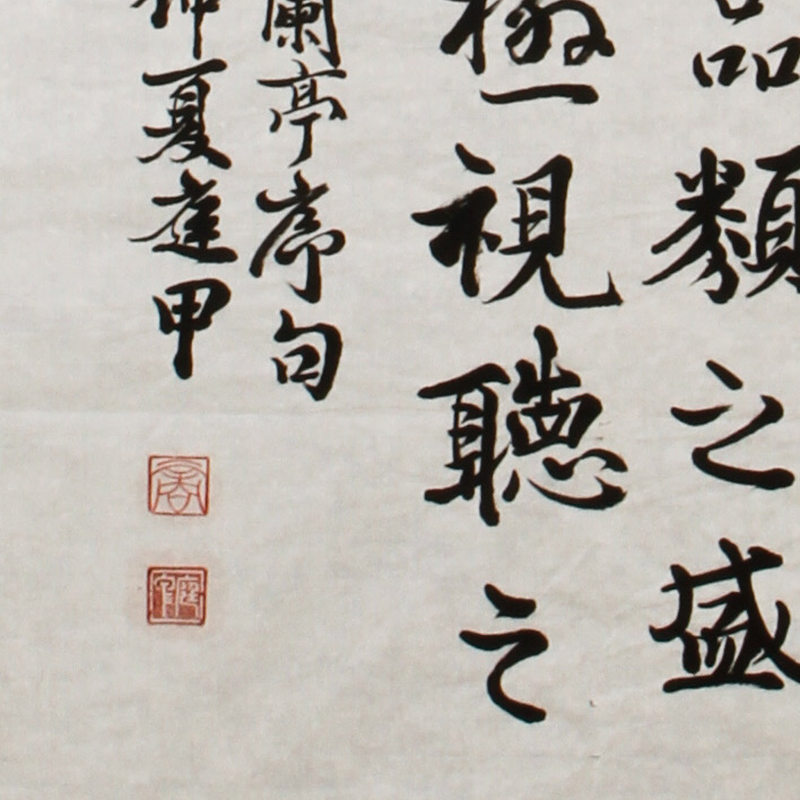 品類之盛
極視聽之
蘭亭序句
仲夏 甲